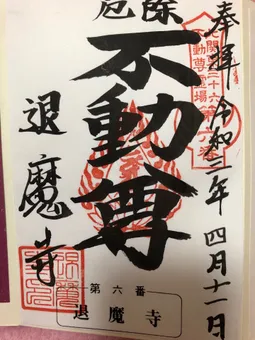 奉拝 令和三年四月十一日
北関東三十六
不動尊霊場
厄除
不動尊
退魔寺
第六番
退魔寺